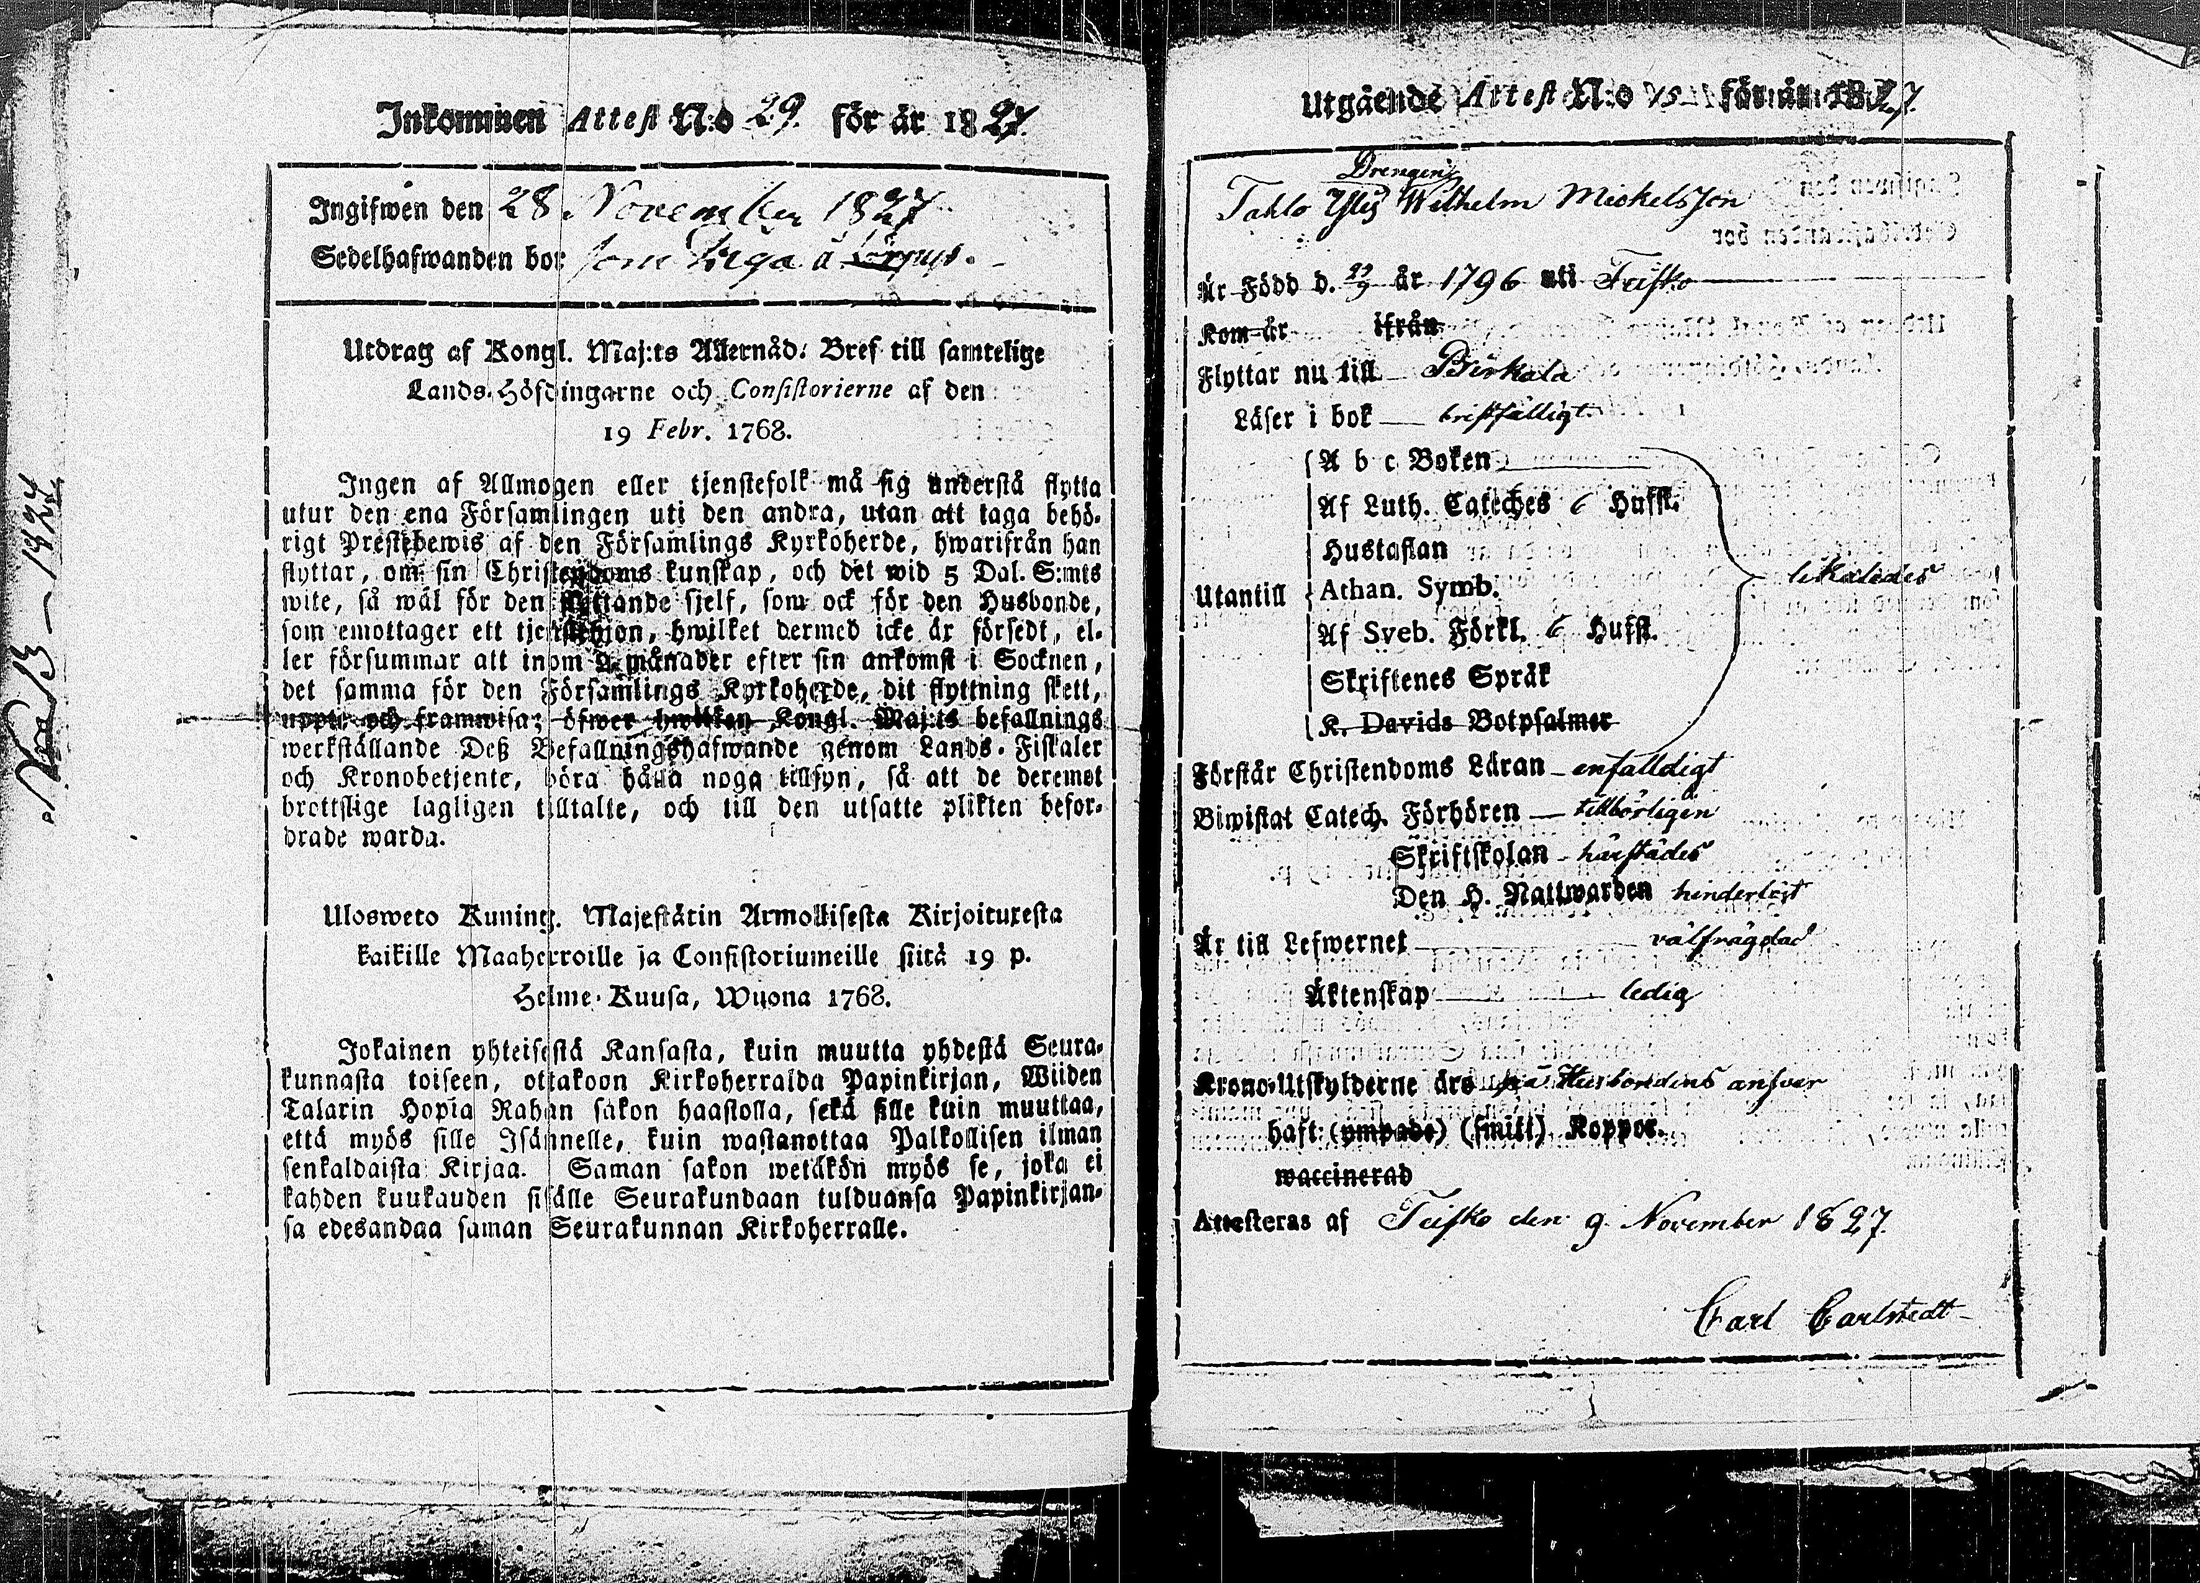 Inkommen Attest N:o 29. för år 1827.
Ingifwen den 28 November 1827
Sedelhafwanden bor som Drga å
Utdrag af Kongl. Maj:ts Allernåd. Bref till samtelige
Lands-Höfdingarne och Consistorierne af den
19 Febr. 1768.
Ingen af Allmogen eller tjenstefolk må sig understå flytta
utur den ena Församlingen uti den andra, utan att taga behö-
rigt Prestebewis af den Församlings Kyrkoherde, hwarifrån han
flyttar, om sin Christendoms kunskap, och det wid 5 Dal. S:mts
wite, så wäl för den flyttande sjelf, som ock för den Husbonde,
som emottager ett tjenstehjon, hwilket dermed icke är försedt, el-
ler försummar att inom 2 månader efter sin ankomst i Socknen,
det samma för den Församlings Kyrkoherde, dit flyttning skett,
uppte och framwisa; öfwer hwilken Kongl. Maj:ts befallnings
werkställande Deß Befallningshafwande genom Lands-Fiskaler
och Kronobetjente, böra hålla noga tillsyn, så att de deremot
brottslige lagligen tilltalte, och till den utsatte plikten befor-
drade warda.
Ulosweto Kuning. Majestätin Armollisesta Kirjoituxesta
kaikille Maaherroille ja Consistoriumeille siitä 19 p.
Helme-Kuusa, Wuona 1768.
Jokainen yhteisestä Kansasta, kuin muutta yhdestä Seura-
kunnasta toiseen, ottakoon Kirkoherralda Papinkirjan, Wiiden
Talarin Hopia Rahan sakon haastolla, sekä sille kuin muuttaa,
että myös sille Isännelle, kuin wastanottaa Palkollisen ilman
senkaldaista Kirjaa. Saman sakon wetäkön myös se, joka ei
kahden kuukauden sisälle Seurakundaan tulduansa Papinkirjan-
sa edesandaa saman Seurakunnan Kirkoherralle.
Utgående Attest N:o för år 1827.
Drengen
Tahlo Wilhelm Mickelsson
Är Född d. 23/9 år 1796 uti Teisko
Kom år ifrån
Flyttar nu till Birkala
Läser i bok bristfälligt
A b c Boken
Af Luth. Cateches 6 Hufst.
Hustaflan
Utantill Athan. Symb. likaledes
Af Sveb. Förkl. 6 Hufst.
Skriftenes Språk
K. Davids Botpsalmer
Förstår Christendoms Läran enfalldigt
Biwistat Catech. Förhören tillbörligen
Skriftskolan härstädes
Den H. Nattwarden hinderlöst
Är till Lefwernet välfrägdad
Äktenskap ledig
Krono-Utskylderne äro på Husbondens ansvar
haft (ympade) (smitt) Koppor.
waccinerad
Attesteras af Teisko den 9 November 1827.
Carl Carlstedt